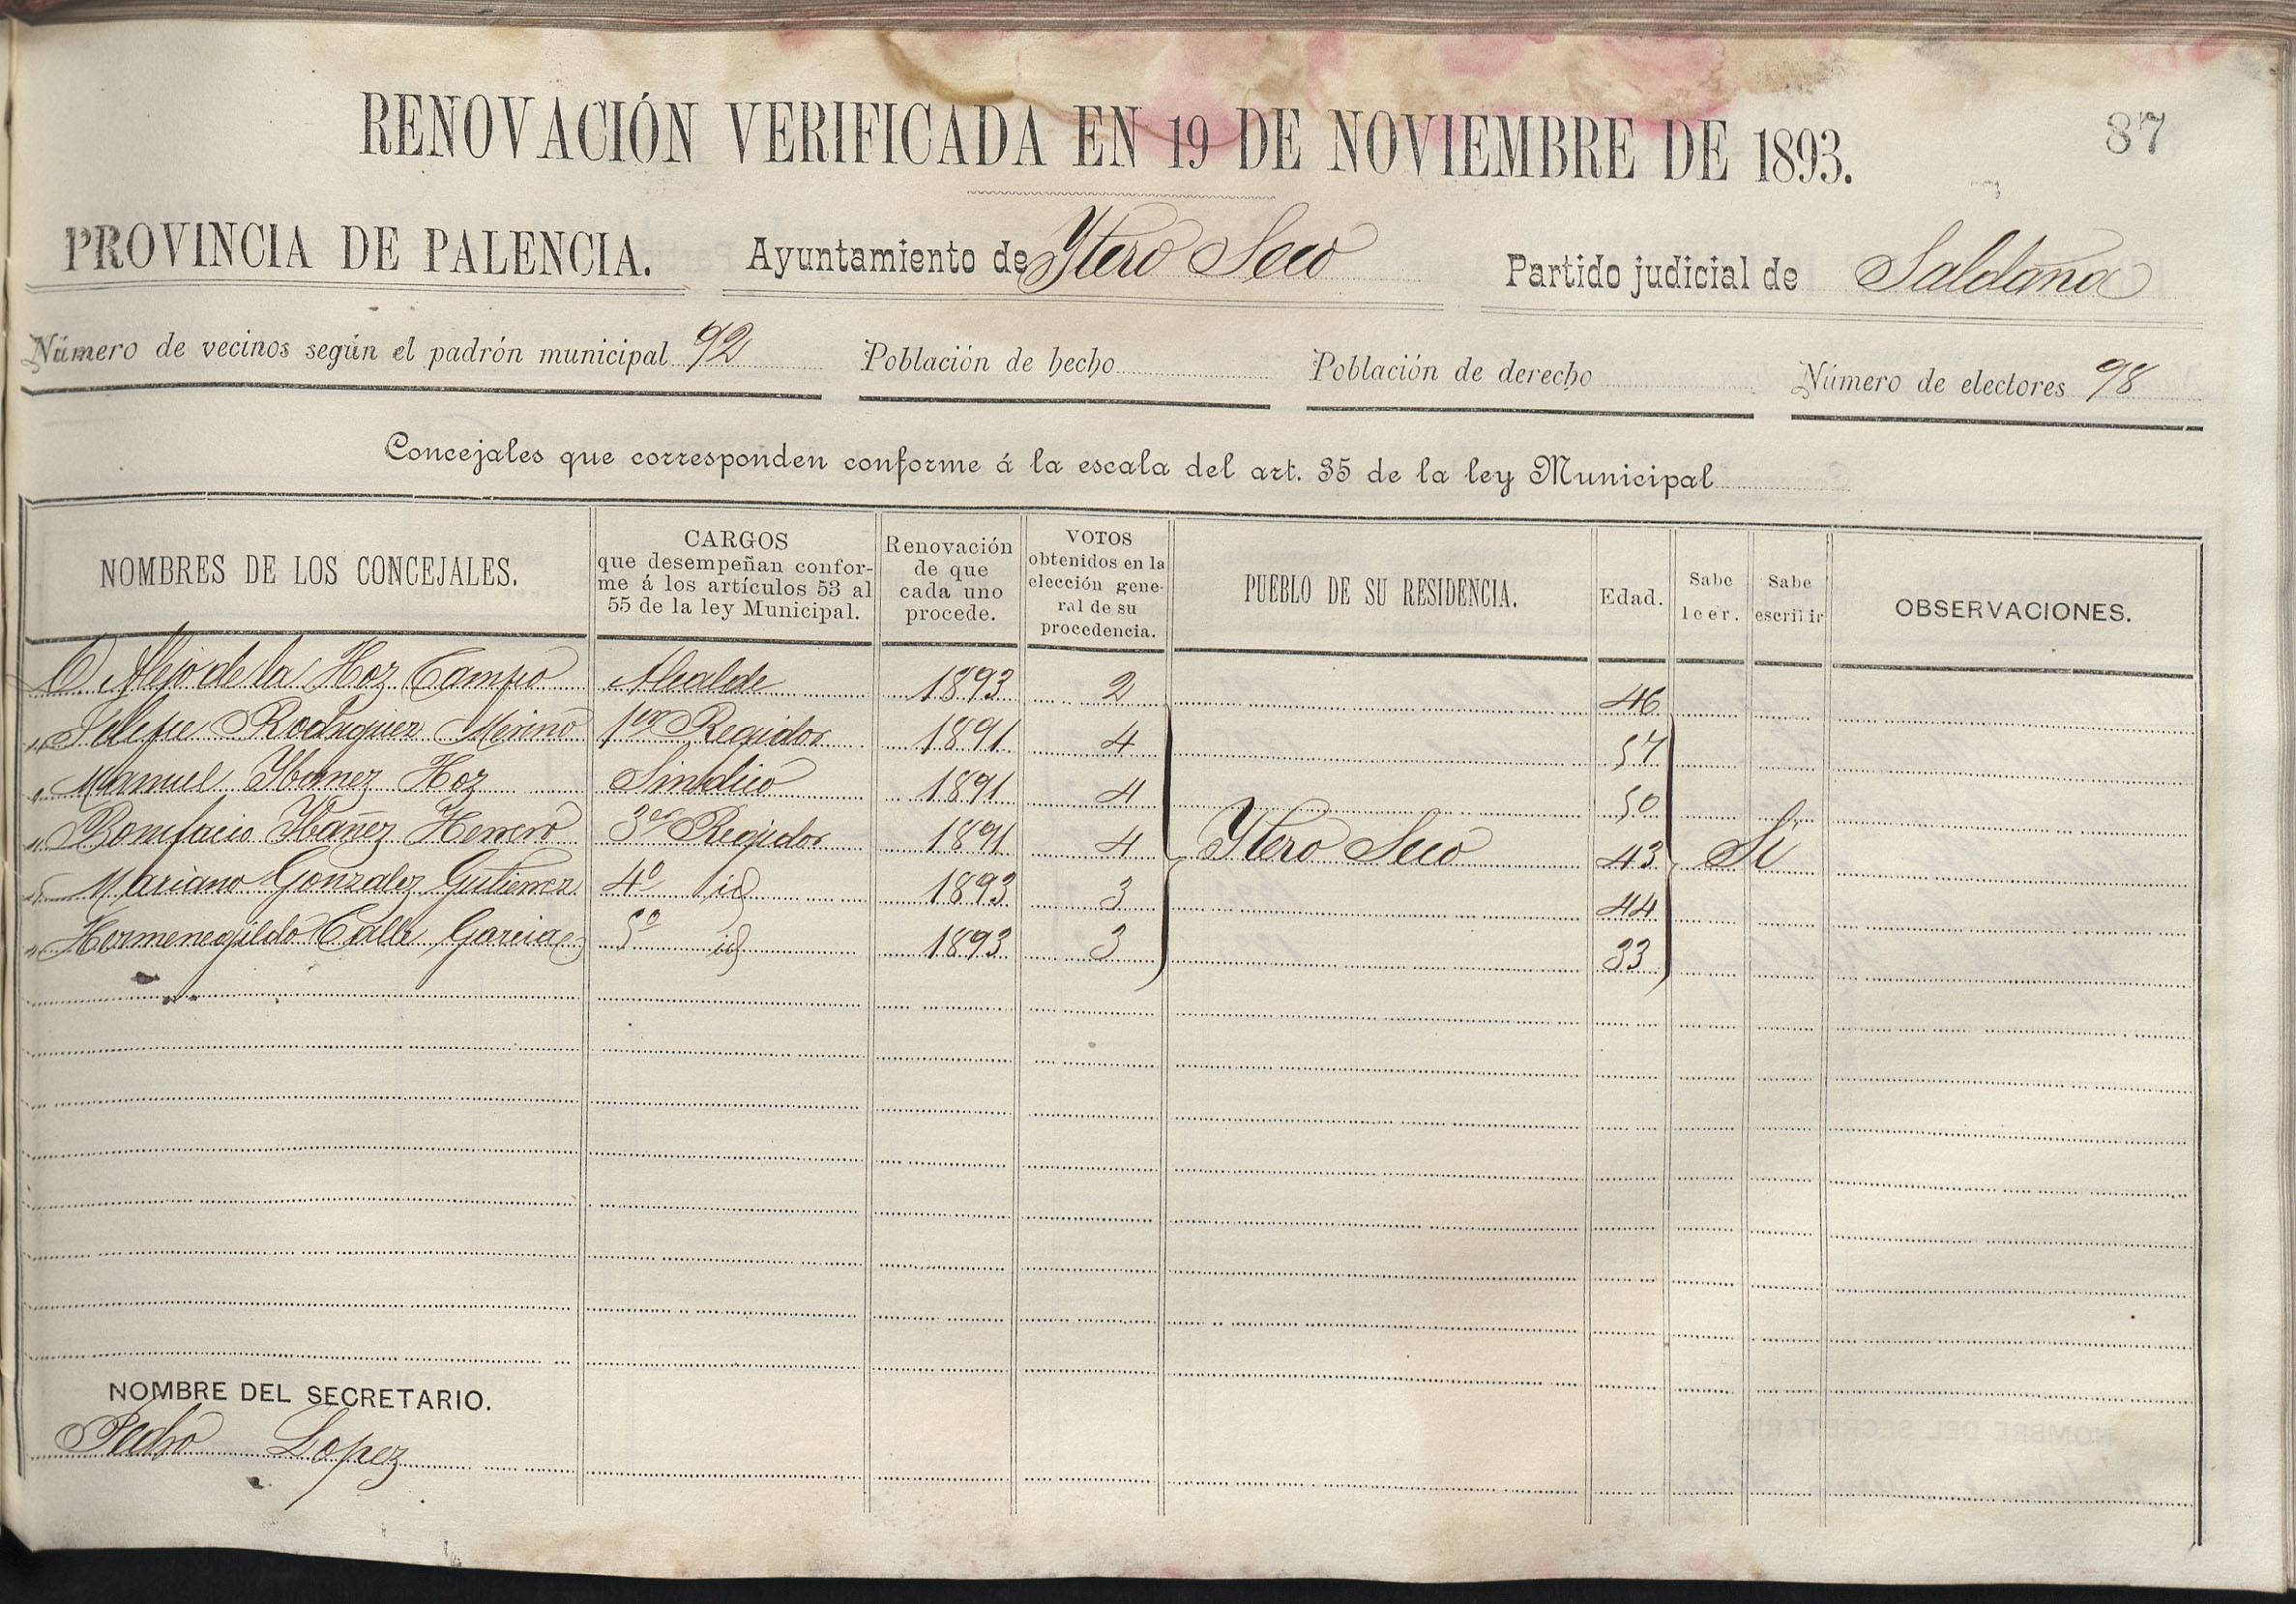 RENOVACIÓN VERIFICADA EN 19 DE NOVIEMBRE DE 1893.
87
PROVINCIA DE PALENCIA. Ayuntamiento de Ytero Seco Partido judicial de Saldaña
Número de vecinos según el padrón municipal 92 Población de hecho Población de derecho Número de electores 98
Concejales que corresponden conforme á la escala del art. 35 de la ley Municipal
NOMBRES DE LOS CONCEJALES.
CARGOS
que desempeñan confor-
me á los artículos 53 al
55 de la ley Municipal.
Renovación
de que
cada uno
procede.
VOTOS
obtenidos en la
elección gene-
ral de su
procedencia.
PUEBLO DE SU RESIDENCIA.
Edad.
Sabe
leer.
Sabe
escribir
OBSERVACIONES.
D. Alejo de la Hoz Campo Alcalde 1893 2 46
" Felipe Rodriguez Merino 1er Regidor 1891 4 57
" Manuel Ybanez Hoz Sindico 1891 4 50
" Bonifacio Ybañez Herrero 3er Regidor 1891 4 Ytero Seco 43 Si
" Mariano Gonzalez Gutierrez 4º id 1893 3 44
" Hermenegildo Calle Garcia 5º id 1893 3 33
NOMBRE DEL SECRETARIO.
Pedro Lopez